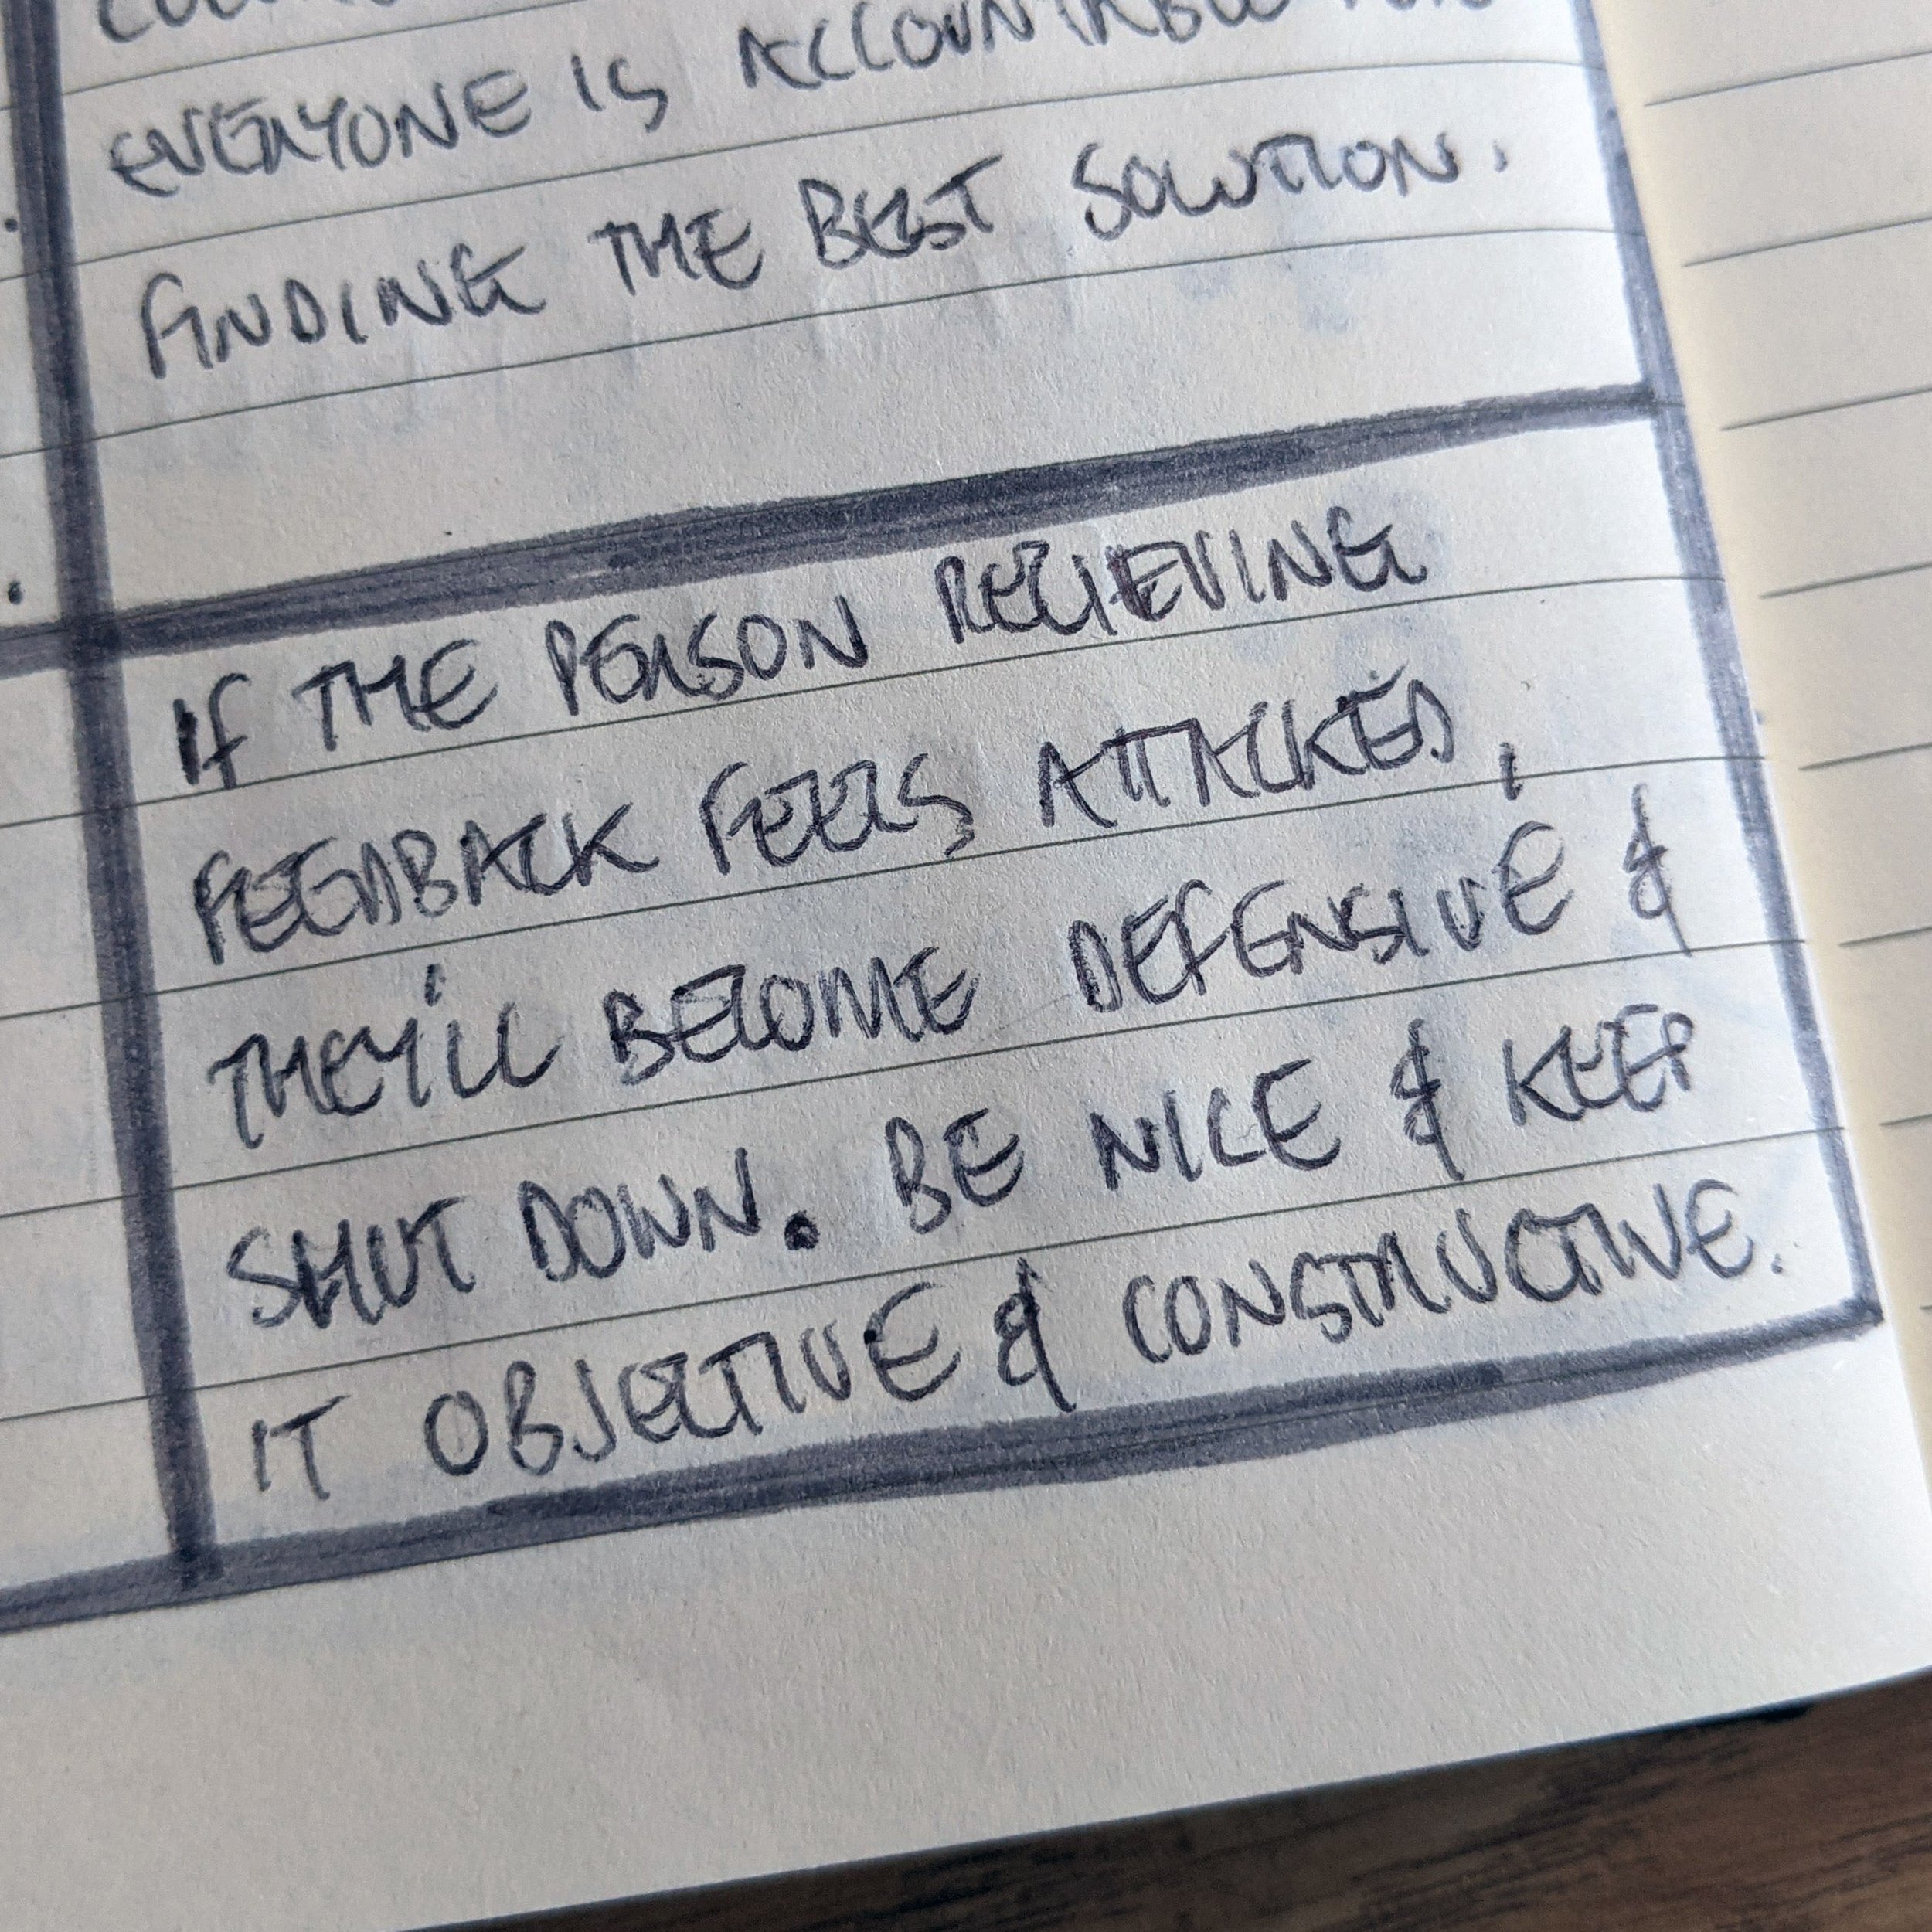 EVERYONE IS ACCOUNTABLE
FINDING THE BEST SOLUTION.
IF THE PERSON RECIEVING
FEEDBACK FEELS ATTACKED,
THEY'LL BECOME DEFENSIVE &
SHUT DOWN. BE NICE & KEEP
IT OBJECTIVE & CONSTRUCTIVE.